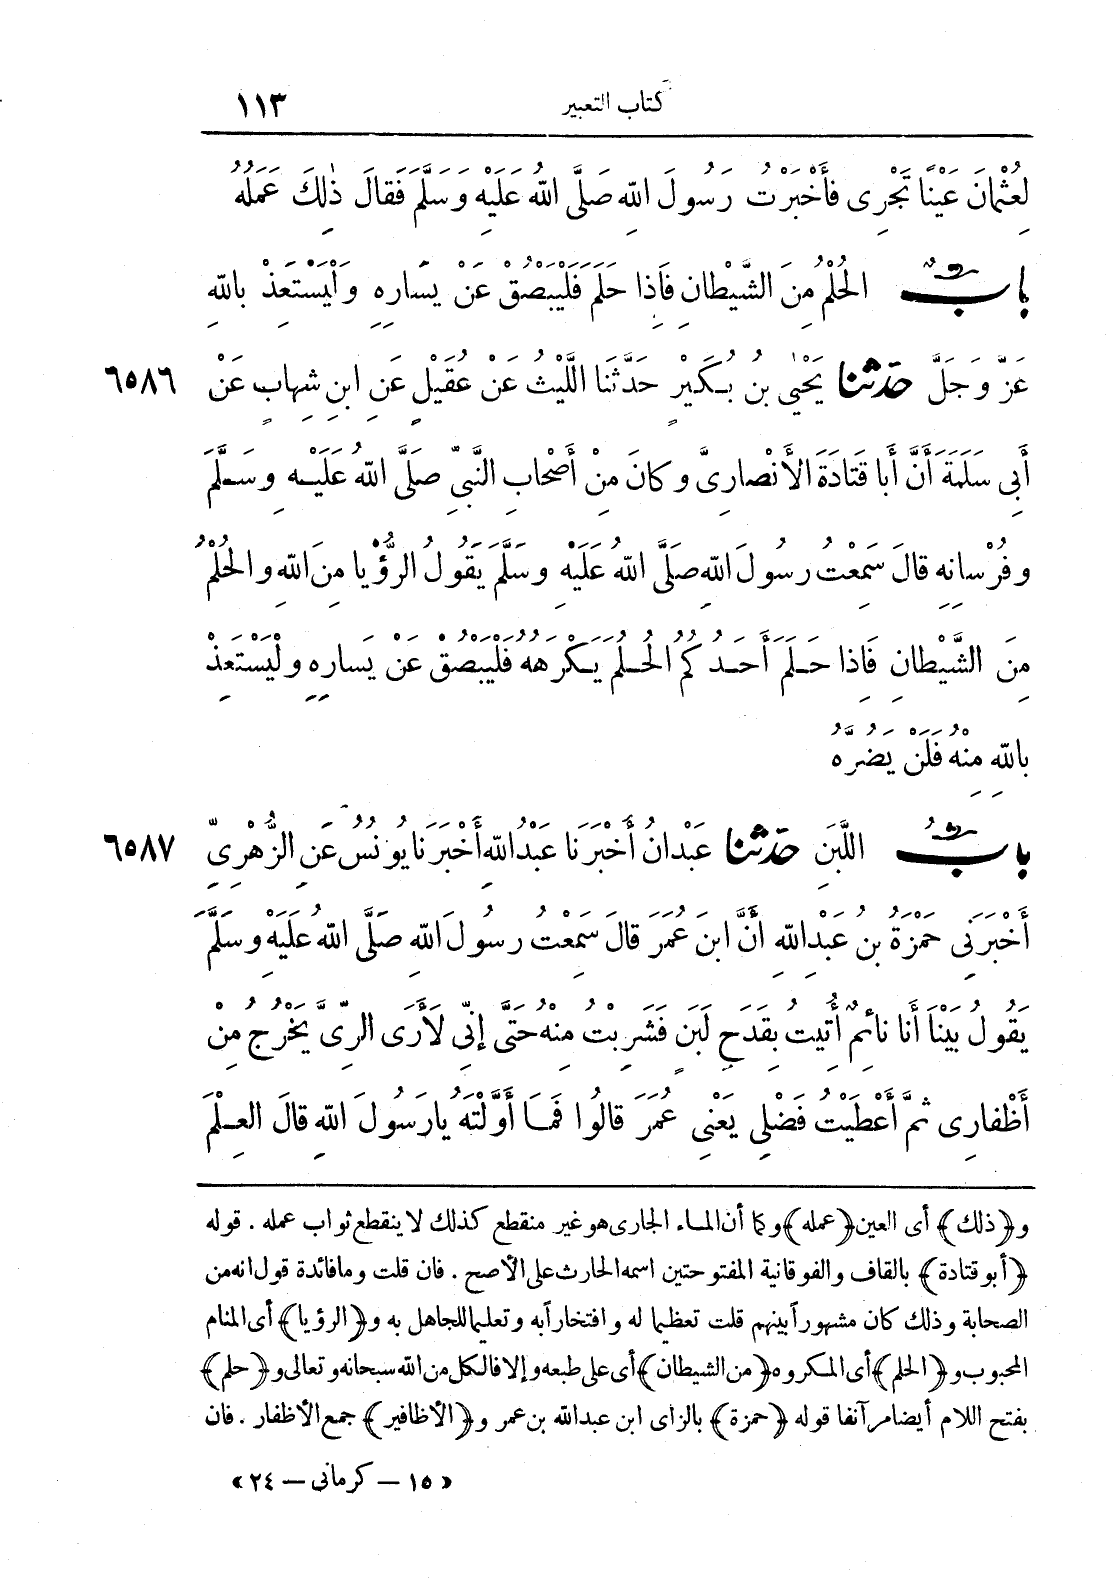 كتاب التعبير ١١٣
لِعُثْمَانَ عَيْنًا تَجْرِى فَأَخْبَرْتُ رَسُولَ اللهِ صَلَّى اللهُ عَلَيْهِ وَسَلَّمَ فَقَالَ ذٰلِكَ عَمَلُهُ
بَابٌ الْحُلْمُ مِنَ الشَّيْطَانِ فَاِذَا حَلَمَ فَلْيَبْصُقْ عَنْ يَسَارِهِ وَلْيَسْتَعِذْ بِاللهِ
عَزَّ وَجَلَّ حَدَّثَنَا يَحْيٰى بنُ بُكَيْرٍ حَدَّثَنَا اللَّيْثُ عَنْ عُقَيْلٍ عَنِ ابنِ شِهَابٍ عَنْ ٦٥٨٦
أَبِى سَلَمَةَ أَنَّ أَبَا قَتَادَةَ الأَنْصَارِىَّ وَكَانَ مِنْ أَصْحَابِ النَّبِىِّ صَلَّى اللهُ عَلَيْهِ وَسَلَّمَ
وَفُرْسَانِهِ قَالَ سَمِعْتُ رسُولَ اللهِ صَلَّى اللهُ عَلَيْهِ وسَلَّمَ يَقُولُ الرُّؤْيَا مِنَ اللهِ والْحُلْمُ
مِنَ الشَّيْطَانِ فَاِذَا حَلَمَ أَحَدُكُمُ الْحُلُمَ يَكْرَهُهُ فَلْيَبْصُقْ عَنْ يَسَارِهِ ولْيَسْتَعِذْ
بِاللهِ مِنْهُ فَلَنْ يَضُرَّهُ
بَابُ اللَّبَنِ حَدَّثَنَا عَبْدَانُ أَخْبَرَنَا عَبْدُاللهِ أَخْبَرَنَا يُونُسُ عَنِ الزُّهْرِىِّ ٦٥٨٧
أَخْبَرَنِى حَمْزَةُ بنُ عَبْدِاللهِ أَنَّ ابنَ عُمَرَ قَالَ سَمِعْتُ رسُولَ اللهِ صَلَّى اللهُ عَلَيْهِ وسَلَّمَ
يَقُولُ بَيْنَا أَنَا نَائِمٌ أُتِيتُ بِقَدَحِ لَبَنٍ فَشَرِبْتُ مِنْهُ حَتَّى إِنِّى لَأَرَى الرِّىَّ يَخْرُجُ مِنْ
أَظْفَارِى ثُمَّ أَعْطَيْتُ فَضْلِى يَعْنِى عُمَرَ قَالُوا فَمَا أَوَّلْتَهُ يَارَسُولَ اللهِ قَالَ الْعِلْمَ
و﴿ذلك﴾ أى العين ﴿عمله﴾ وكما أن الماء الجارى هو غير منقطع كذلك لا ينقطع ثواب عمله . قوله
﴿أبو قتادة﴾ بالقاف والفوقانية المفتوحتين اسمه الحارث على الأصح . فان قلت وما فائدة قول انه من
الصحابة وذلك كان مشهوراً بينهم قلت تعظيما له وافتخاراً به وتعليما للجاهل به و﴿الرؤيا﴾ أى المنام
المحبوب و﴿الحلم﴾ أى المكروه ﴿من الشيطان﴾ أى على طبعه وإلا فالكل من الله سبحانه وتعالى و﴿حلم﴾
بفتح اللام أيضا مر آنفا قوله ﴿حمزة﴾ بالزاى ابن عبد الله بن عمر و﴿الأظافير﴾ جمع الأظفار . فان
«١٥ – كرمانى – ٢٤»